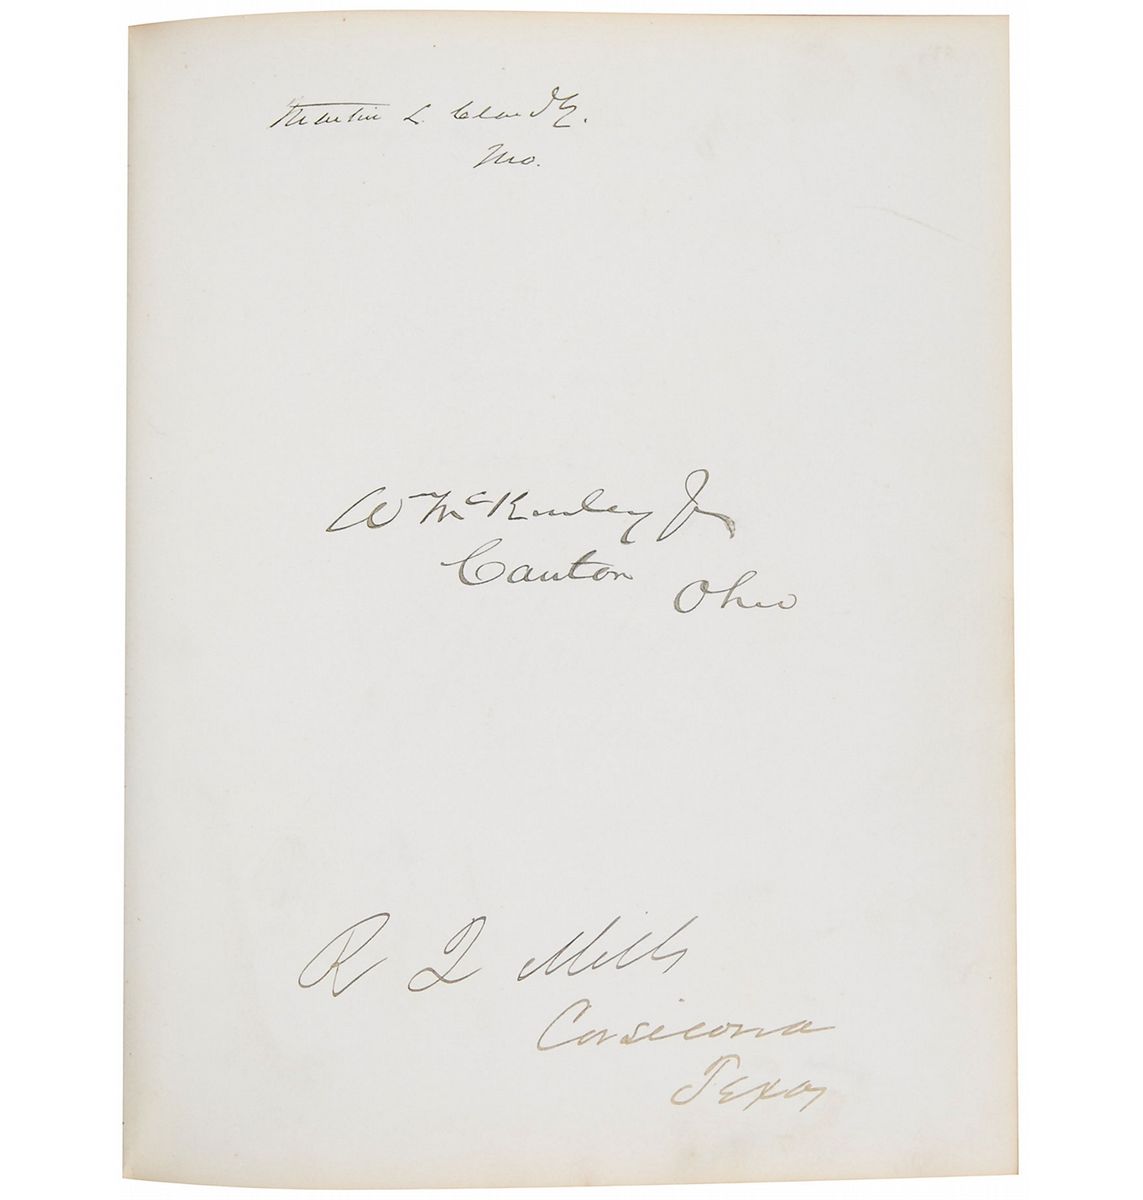 Martin L. Clardy.
Mo.
Wm McKinley Jr
Canton Ohio
R Q Mills
Corsicana
Texas